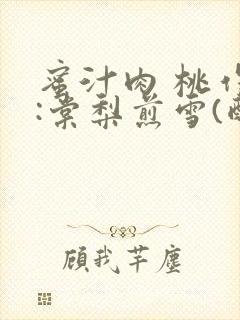 蜜汁肉桃作
:棠梨煎雪(
顾我芊尘